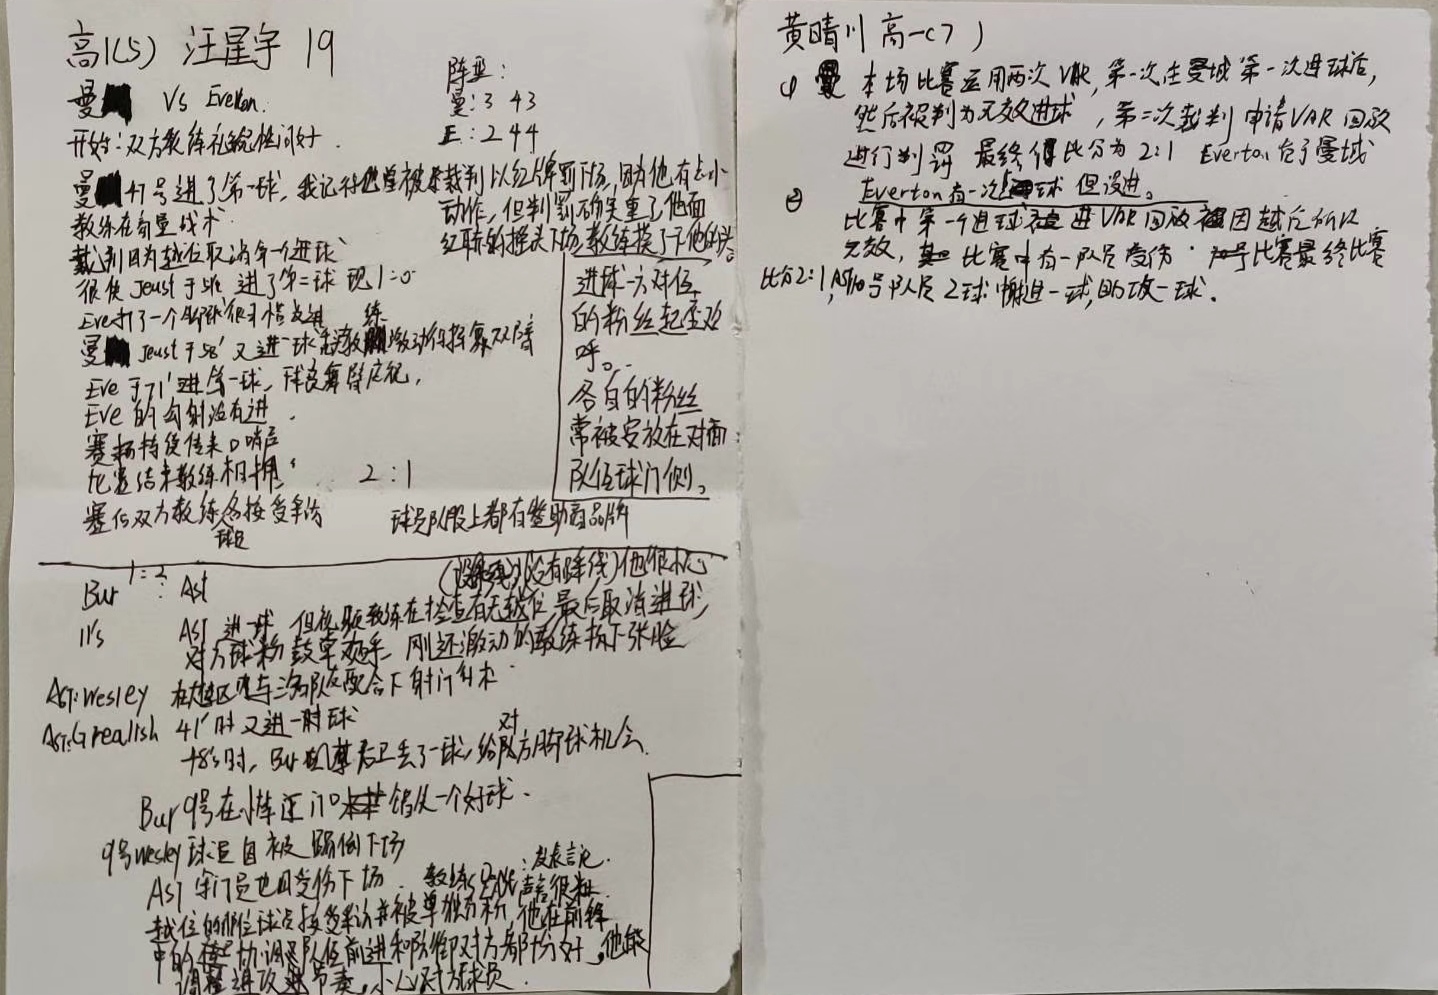 高1(5) 汪星宇 19
曼 Vs Everton.
开始:双方教练礼貌性问好.
阵型:
曼:3 43
E:2 44
曼 47号进了第一球,我记得他曾被裁判以红牌罚下场,因为他有点小
动作,但判罚确实重了他面
红耳赤的摇头下场,教练摸了下他的头。
教练在布置战术
裁判因为越位取消第一个进球
很快 Jeust于51' 进了第二球 现1=0
Eve打了一个
曼 Jeust于58' 又进一球 教练激动得挥舞双臂
Eve 于71' 进第一球,球员舞臂庆祝,
Eve 的勾射没有进.
赛场持续传来口哨声
比赛结束教练相拥 2:1
赛后双方教练各接受采访
球员
球员队服上都有赞助商品牌
进球一方对位
的粉丝起立欢
呼。
各自的粉丝
常被安放在对面
队伍球门侧。
Bur 1=2 Ast
(没有降线)他很
11's Ast 进球 但视频教练在检查有无越位,最后取消进球,
对方球粉鼓掌 刚还激动的教练拉下张脸
AST:Wesley 在越区内与三名队友配合下射门
AST:Grealish 41'时又进一球
48's时,Bur 后卫丢了一球,给对方脚球机会.
Bur 9号在 门口 错失一个好球.
9号Wesley球员自被踢倒下场
AST 守门员也因受伤下场. 教练 发表言论.
越位的那位球员接受采访并被单独分析,他在前锋
中的 协调队伍前进和防御对方都十分好,他能
调整进攻节奏,小心对方球员
黄晴川 高一(7)
① 本场比赛运用两次 VAR,第一次在曼城第一次进球后,
然后被判为无效进球,第二次裁判申请VAR回放
进行判罚 最终 比分为2:1 Everton 负了曼城
Everton有一次 球 但没进。
② 比赛中第一个进球被 进VAR回放 因越位所以
无效, 比赛中有一队员受伤. 比赛最终比赛
比分2:1,Ast10号队员2球 进一球,助攻一球.